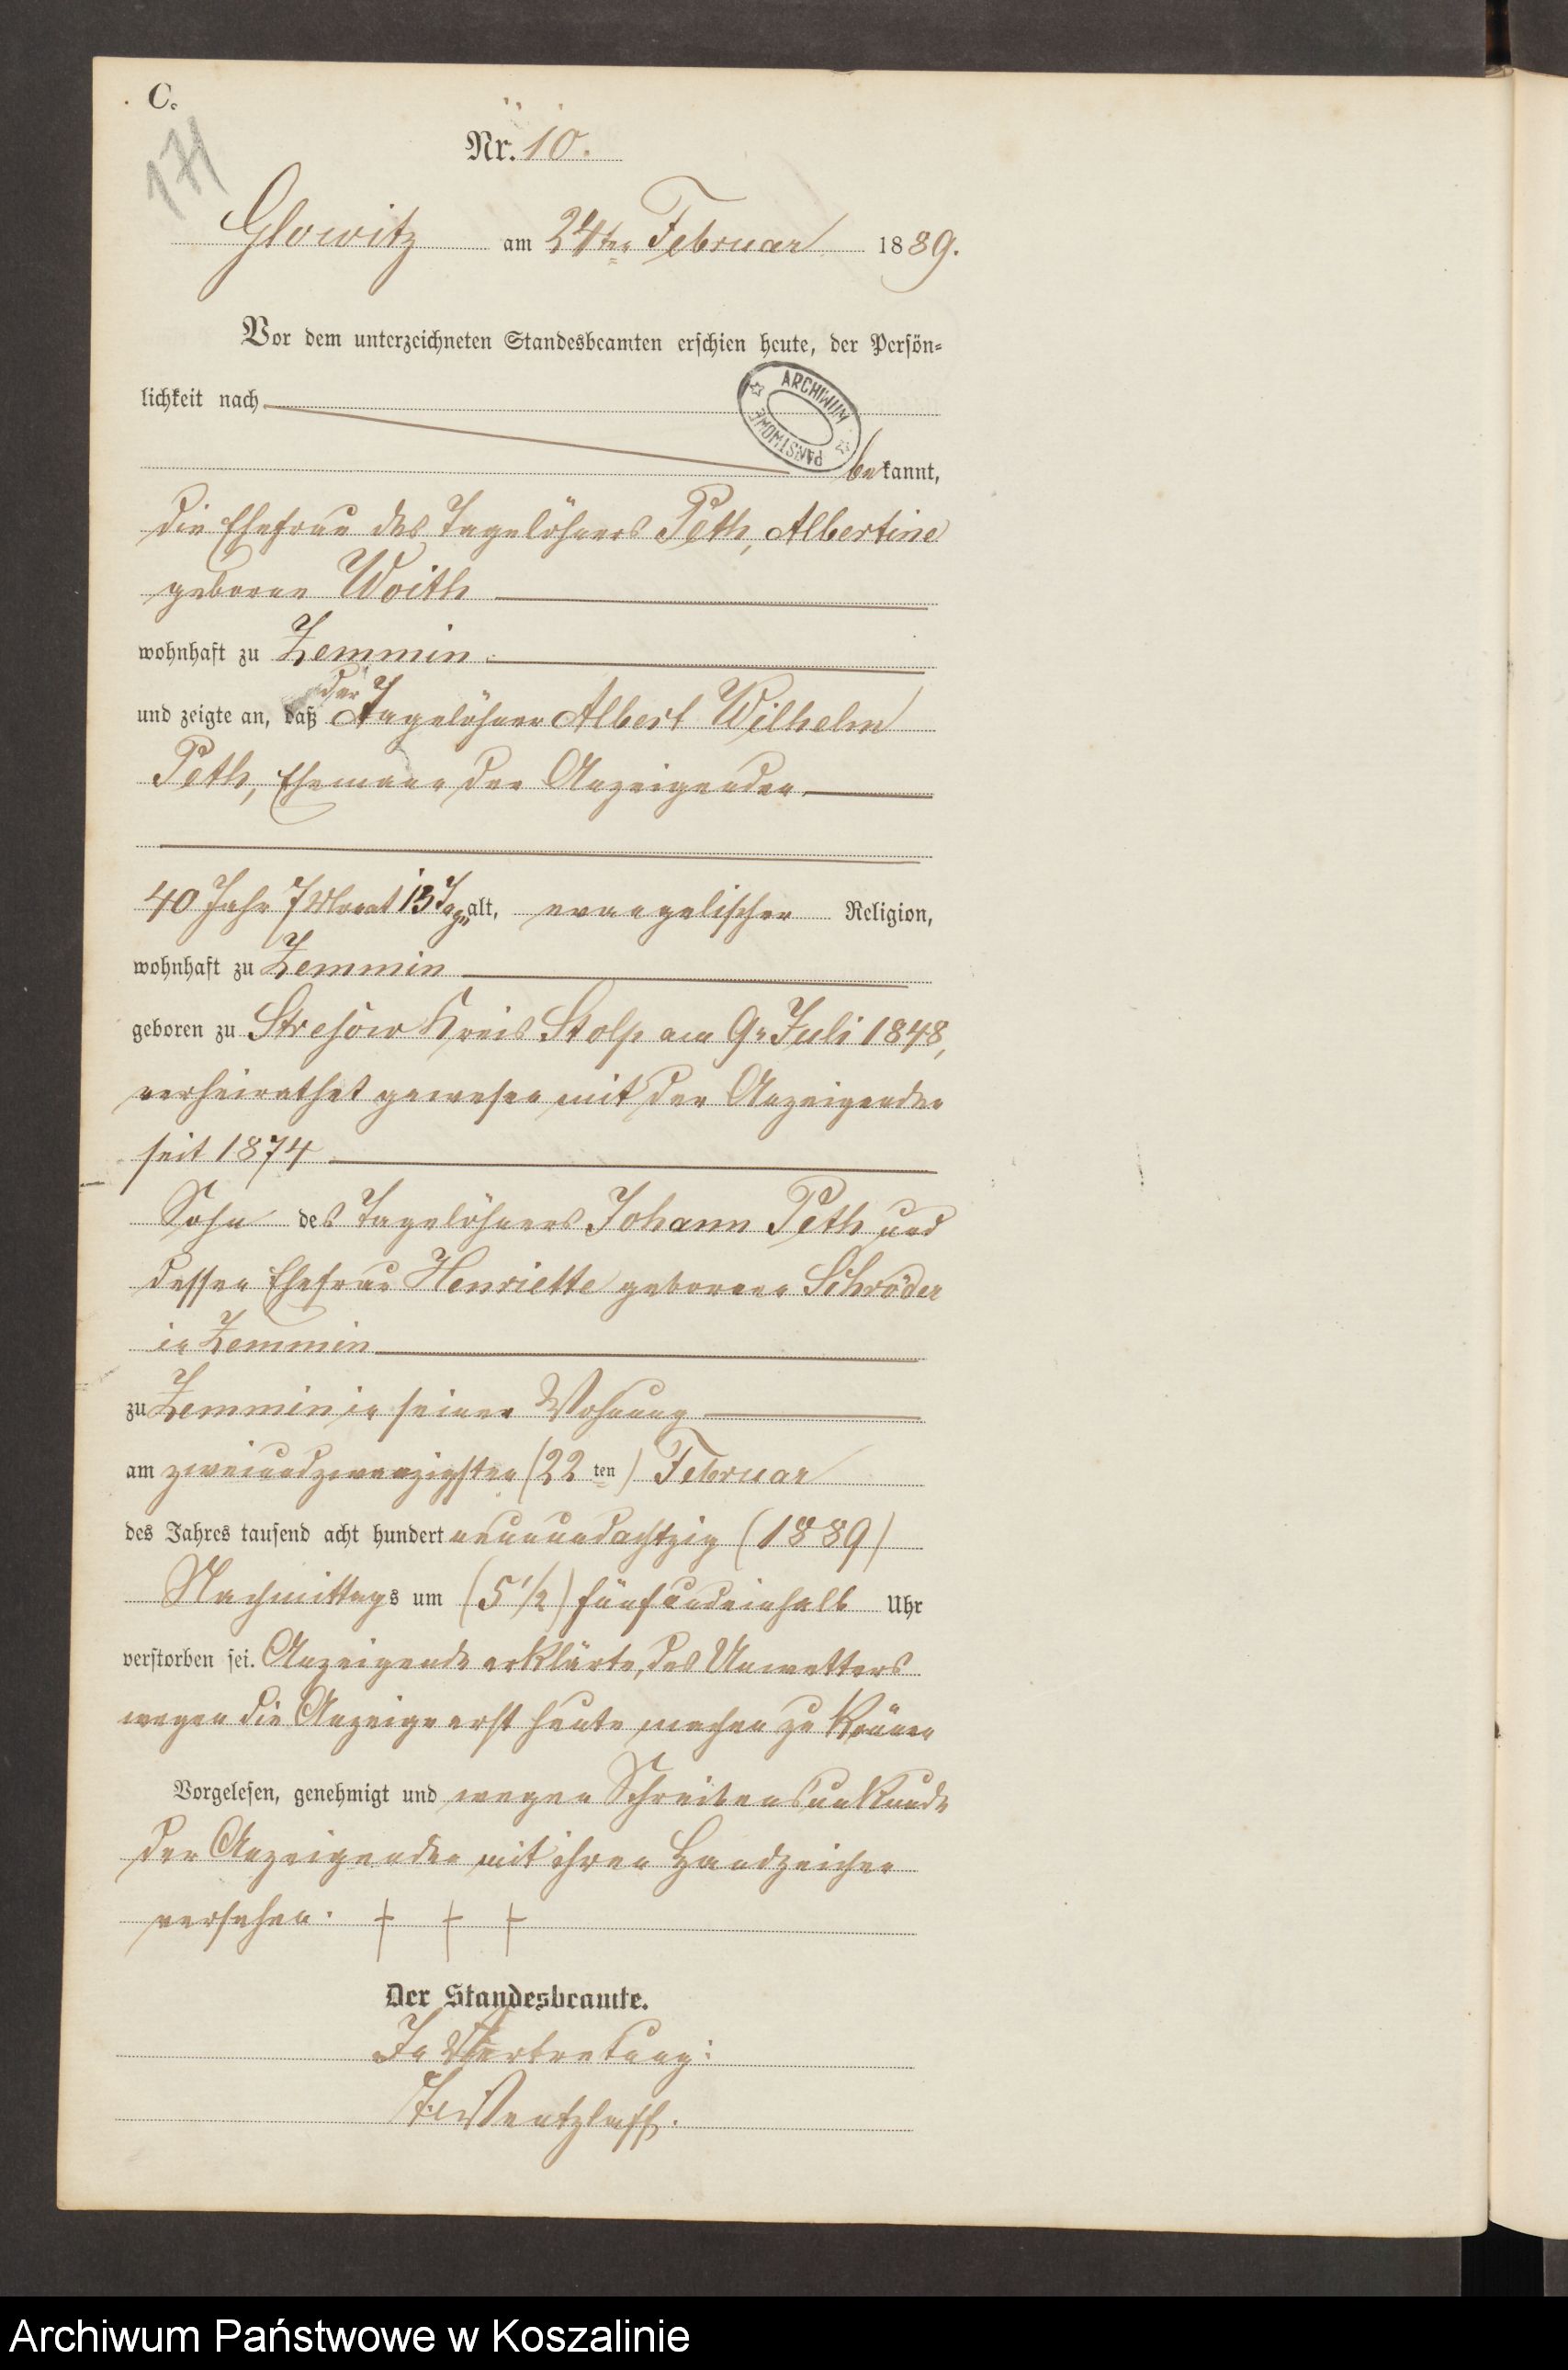 C.
171
Nr. 10.
Glowitz am 24ten Februar 1889.
Vor dem unterzeichneten Standesbeamten erschien heute, der Persön=
lichkeit nach
ARCHIWUM PAŃSTWOWE
bekannt,
die Ehefrau des Tagelöhners Peth, Albertine
geborne Woith
wohnhaft zu Zemmin
der
und zeigte an, daß Tagelöhner Albert Wilhelm
Peth, Ehemann der Anzeigenden
40 Jahr 7 Monat 13 Tage alt, evangelischer Religion,
wohnhaft zu Zemmin
geboren zu Stresow Kreis Stolp am 9. Juli 1848,
verheirathet gewesen mit der Anzeigenden
seit 1874
Sohn des Tagelöhners Johann Peth und
dessen Ehefrau Henriette geborene Schröder
in Zemmin
zu Zemmin in seiner Wohnung
am zweiundzwanzigsten (22ten) Februar
des Jahres tausend acht hundert neunundachtzig (1889)
Nachmittags um (5 1/2) fünfundeinhalb Uhr
verstorben sei. Anzeigende erklärte, des Unwetters
wegen die Anzeige erst heute machen zu können
Vorgelesen, genehmigt und wegen Schreibensunkunde
der Anzeigenden mit ihren Handzeichen
versehen. + + +
Der Standesbeamte.
In Vertretung:
Wentzlaff.
Archiwum Państwowe w Koszalinie